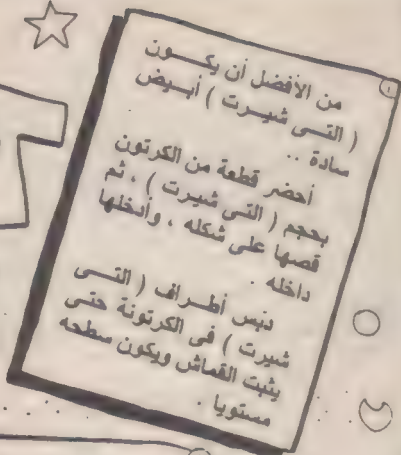 من الأفضل أن يكـــون
( التــى شيــرت ) أبــيض
سادة ..
أحضر قطعة من الكرتون
بحجم ( التى شيرت ) ، ثم
قصها على شكله ، وأدخلها
داخله .
دبس أطــراف ( التــى
شيرت ) فى الكرتونة حتـى
يثبت القماش ويكون سطحه
مستويا .